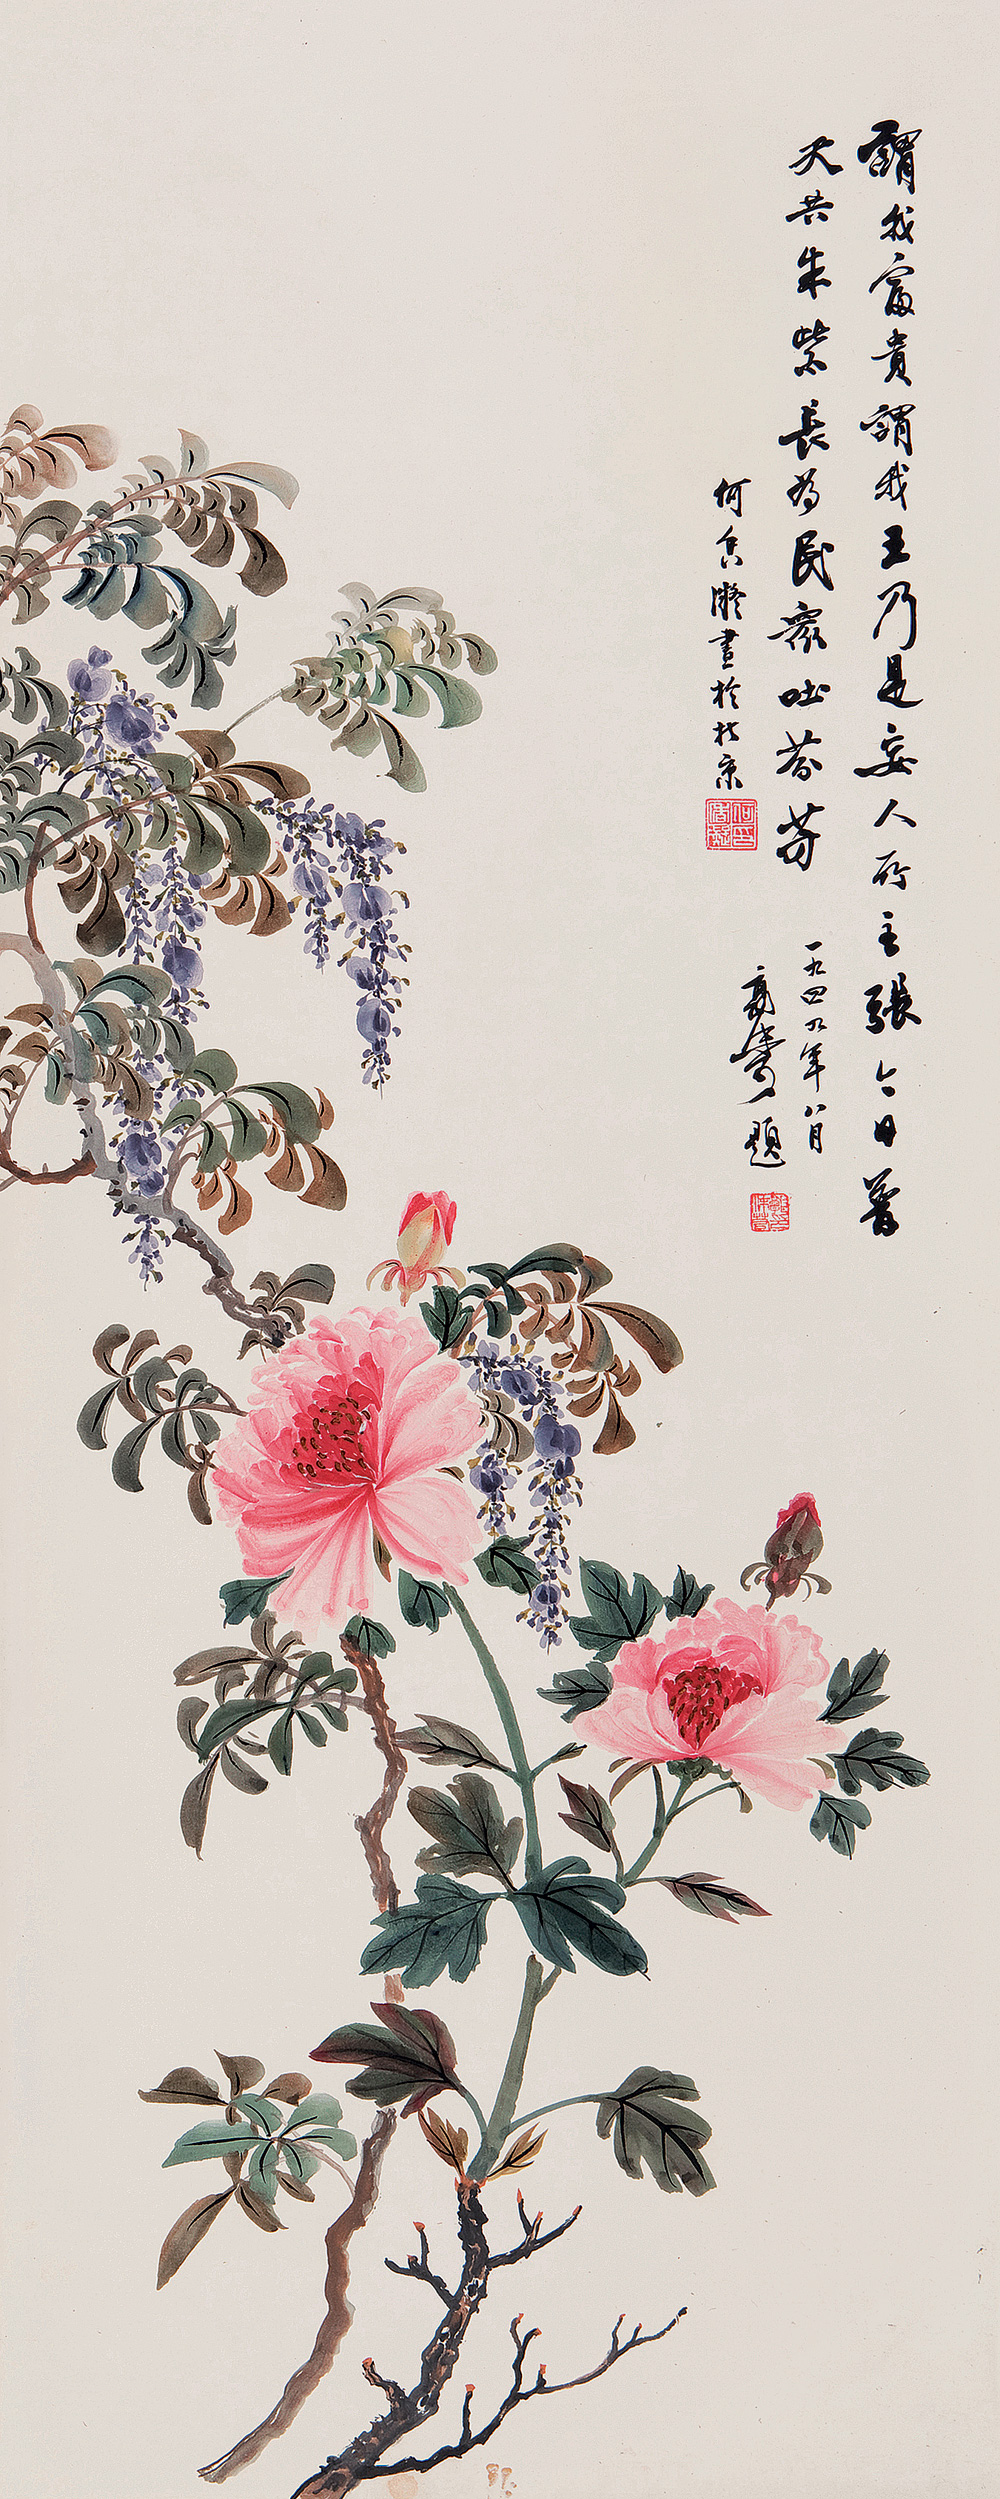 謂我富貴謂我王乃是妄人所主張今日普
天共朱紫長為民眾吐芬芳
一九四九年八月
題
何香凝畫於北京
何香凝印